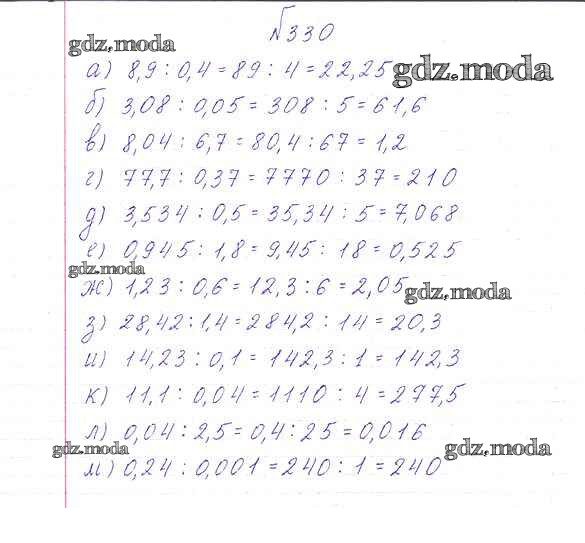 №330
gdz.moda
а) 8,9 : 0,4 = 89 : 4 = 22,25 gdz.moda
б) 3,08 : 0,05 = 308 : 5 = 61,6
в) 8,04 : 6,7 = 80,4 : 67 = 1,2
г) 77,7 : 0,37 = 7770 : 37 = 210
д) 3,534 : 0,5 = 35,34 : 5 = 7,068
е) 0,945 : 1,8 = 9,45 : 18 = 0,525
gdz.moda
ж) 1,23 : 0,6 = 12,3 : 6 = 2,05 gdz.moda
з) 28,42 : 1,4 = 284,2 : 14 = 20,3
и) 14,23 : 0,1 = 142,3 : 1 = 142,3
к) 11,1 : 0,04 = 1110 : 4 = 277,5
л) 0,04 : 2,5 = 0,4 : 25 = 0,016
gdz.moda gdz.moda
м) 0,24 : 0,001 = 240 : 1 = 240